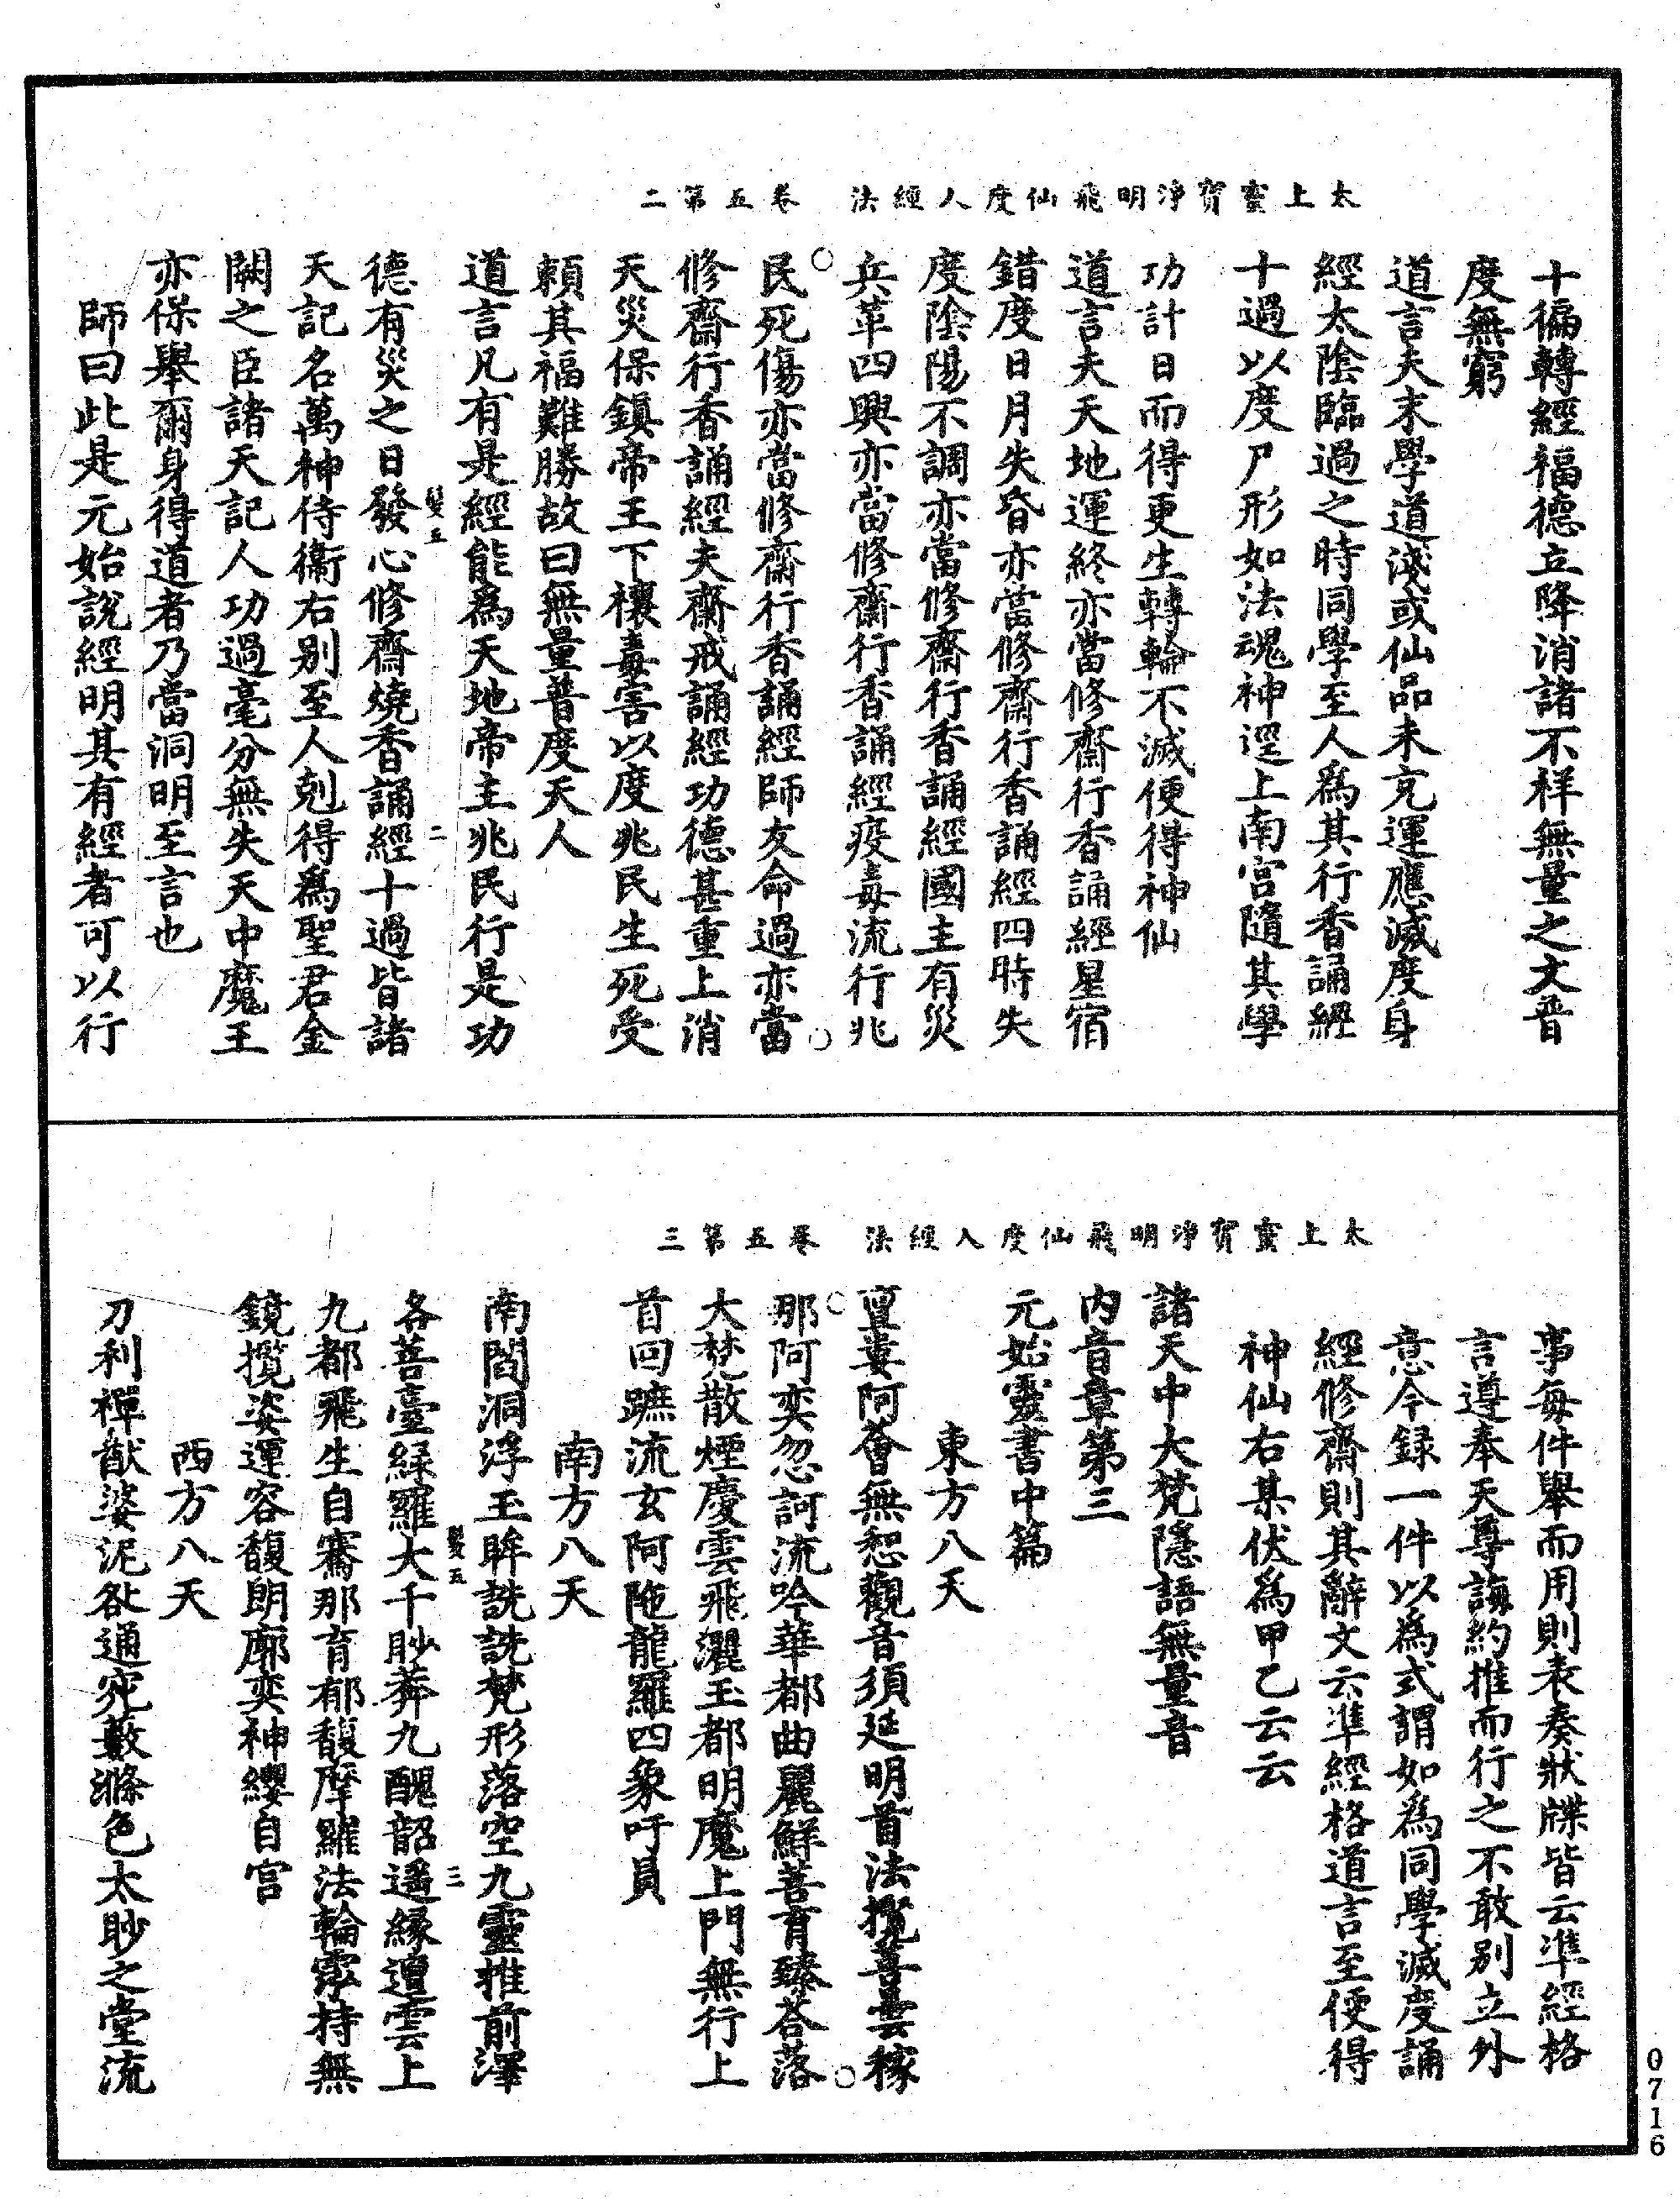 太上靈寶淨明飛仙度人經法 卷五第二
十徧轉經福德立降消諸不祥無量之文普
度無窮
道言夫末學道淺或仙品未充運應滅度身
經太陰臨過之時同學至人爲其行香誦經
十過以度尸形如法魂神逕上南宮隨其學
功計日而得更生轉輪不滅便得神仙
道言夫天地運終亦當修齋行香誦經星宿
錯度日月失昏亦當修齋行香誦經四時失
度陰陽不調亦當修齋行香誦經國主有災
兵革四興亦當修齋行香誦經疫毒流行兆
民死傷亦當修齋行香誦經師友命過亦當
修齋行香誦經夫齋戒誦經功德甚重上消
天災保鎮帝王下禳毒害以度兆民生死受
賴其福難勝故曰無量普度天人
道言凡有是經能爲天地帝主兆民行是功
德有災之日發心修齋燒香誦經十過皆諸
髮五 二
天記名萬神侍衞右别至人剋得爲聖君金
闕之臣諸天記人功過毫分無失天中魔王
亦保舉爾身得道者乃當洞明至言也
師曰此是元始說經明其有經者可以行
太上靈寶淨明飛仙度人經法 卷五第三
事每件舉而用則表奏狀牒皆云準經格
言遵奉天尊誨約推而行之不敢别立外
意今録一件以爲式謂如爲同學滅度誦
經修齋則其辭文云準經格道言至便得
神仙右某伏爲甲乙云云
諸天中大梵隱語無量音
内音章第三
元始靈書中篇
東方八天
亶婁阿薈無惒觀音須延明首法攬菩曇稼
那阿奕忽訶流吟華都曲麗鮮菩育臻荅落
大梵散煙慶雲飛灑玉都明魔上門無行上
首回蹠流玄阿陁龍羅四象吁員
南方八天
南閻洞浮玉眸詵詵梵形落空九靈推前澤
各菩臺緑羅大千眇莽九醜韶遥縁邅雲上
髮五 三
九都飛生自騫那育郁馥摩羅法輪霐持無
鏡攬姿運容馥朗廓奕神纓自宫
西方八天
刀利禪猷婆泥咎通宛藪滌色太眇之堂流
0716